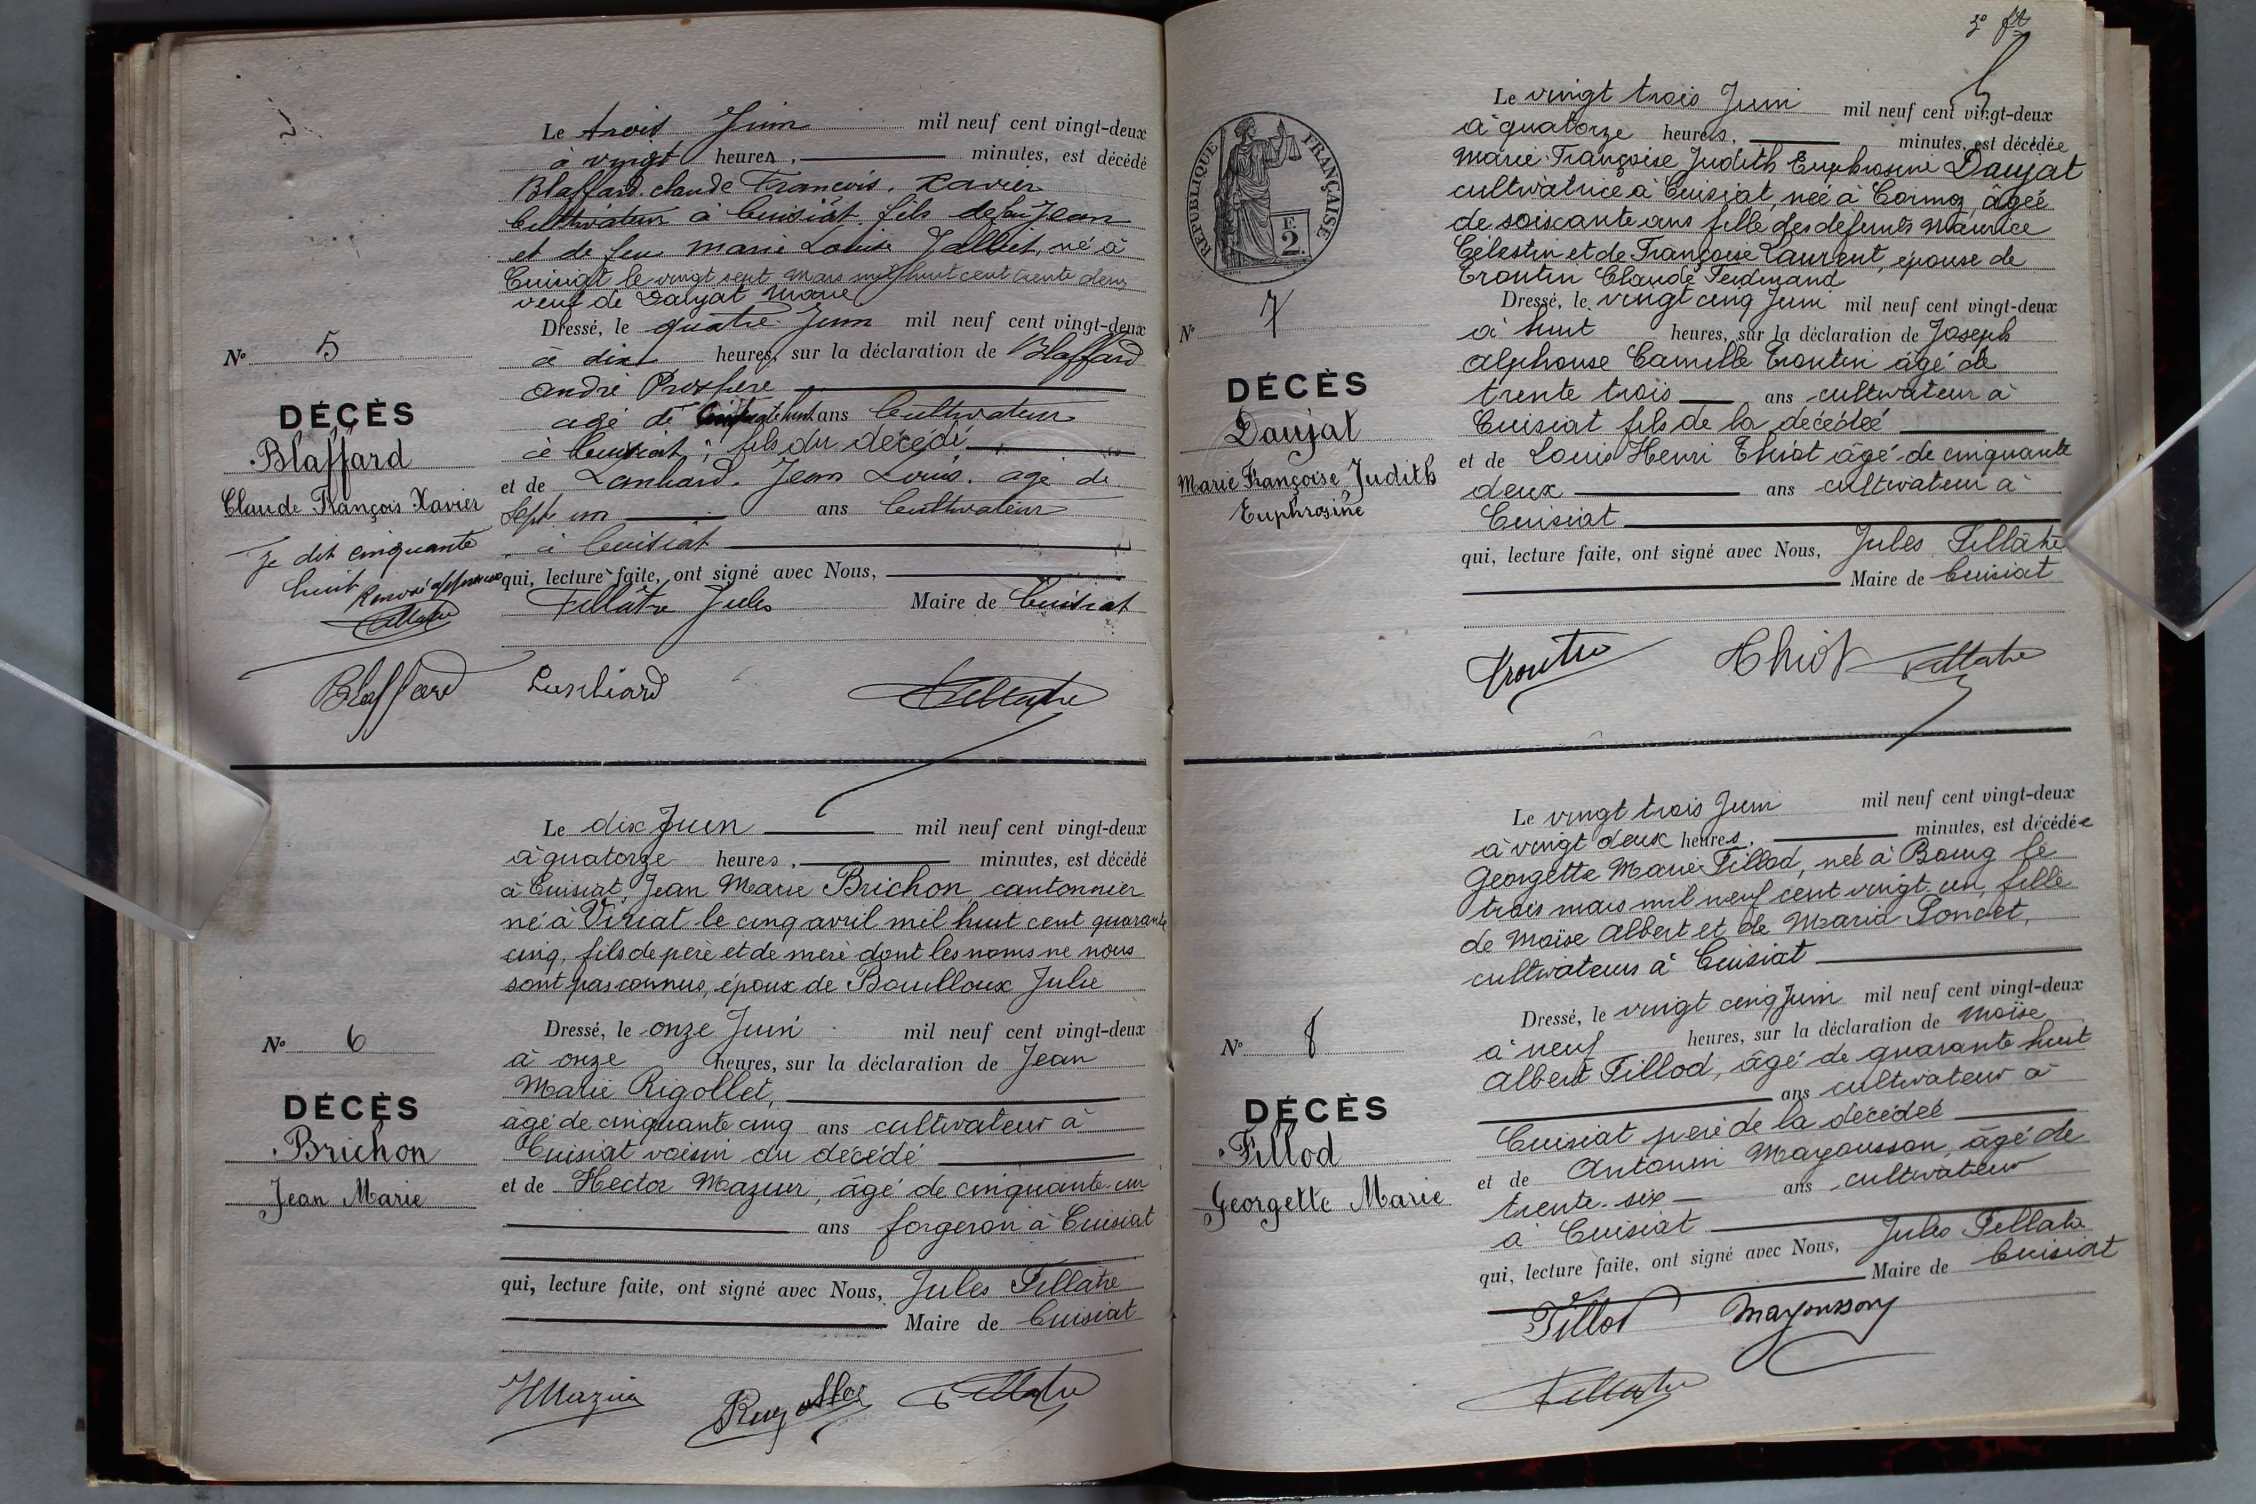 N° 5
DÉCÈS
Blaffard
Claude François Xavier
Je dit cinquante
huit Renvoi approuvé
Fillatre
Le trois Juin mil neuf cent vingt-deux
à vingt heures, minutes, est décédé
Blaffard Claude Francois. Xavier
Cultivateur à Cuisiat fils de feu Jean
et de feu Marie Louise Jolliet, né à
Cuisiat le vingt sept Mars mil huit cent trente deux
veuf de Daujat Marie
Dressé, le quatre Juin mil neuf cent vingt-deux
à dix heures, sur la déclaration de Blaffard
andré Prospere
agé de ans Cultivateur
à Cuisiat ; fils du décédé
et de Jean Louis. agé de
ans Cultivateur
à Cuisiat
qui, lecture faite, ont signé avec Nous,
Fillâtre Jules Maire de Cuisiat
Blaffard Fillatre
N° 6
DÉCÈS
Brichon
Jean Marie
Le dix Juin mil neuf cent vingt-deux
à quatorze heures, minutes, est décédé
à Cuisiat, Jean Marie Brichon cantonnier
né à Viriat le cinq avril mil huit cent quarante
cinq, fils de père et de mère dont les noms ne nous
sont pas connus, époux de Bouilloux Julie
Dressé, le onze Juin mil neuf cent vingt-deux
à onze heures, sur la déclaration de Jean
Marie Rigollet,
âgé de cinquante cinq ans cultivateur à
Cuisiat voisin du décédé
et de Hector Mazuir, âgé de cinquante un
ans forgeron à Cuisiat
qui, lecture faite, ont signé avec Nous, Jules Fillatre
Maire de Cuisiat
HMazuir Rigollet Fillatre
RÉPUBLIQUE FRANÇAISE
F.
2
N° 7
DÉCÈS
Daujat
Marie Françoise Judith
Euphrosine
Le vingt trois Juin mil neuf cent vingt-deux
à quatorze heures, minutes, est décédée
Marie Françoise Judith Euphrosine Daujat
cultivatrice à Cuisiat, née à Cormoz, âgée
de soixante ans fille des defunts Maurice
Célestin et de Françoise Laurent, épouse de
Troutin Claude Ferdinand
Dressé, le vingt cinq Juin mil neuf cent vingt-deux
à huit heures, sur la déclaration de Joseph
Alphonse Camille Troutin âgé de
trente trois ans cultivateur à
Cuisiat fils de la décédée
et de Louis Henri Thiot âgé de cinquante
deux ans cultivateur à
Cuisiat
qui, lecture faite, ont signé avec Nous, Jules Fillâtre
Maire de Cuisiat
Thiot Fillatre
N° 8
DÉCÈS
Fillod
Georgette Marie
Le vingt trois Juin mil neuf cent vingt-deux
à vingt deux heures, minutes, est décédée
Georgette Marie Fillod, née à Bourg le
trois mars mil neuf cent vingt un, fille
de Moïse Albert et de Maria Poncet,
cultivateurs à Cuisiat
Dressé, le vingt cinq Juin mil neuf cent vingt-deux
à neuf heures, sur la déclaration de Moïse
Albert Fillod, âgé de quarante huit
ans cultivateur à
Cuisiat père de la décédée
et de Antonin Mayousson, âgé de
trente-six ans cultivateur
à Cuisiat
qui, lecture faite, ont signé avec Nous, Jules Fillatre
Maire de Cuisiat
Fillod Mayousson
Fillatre